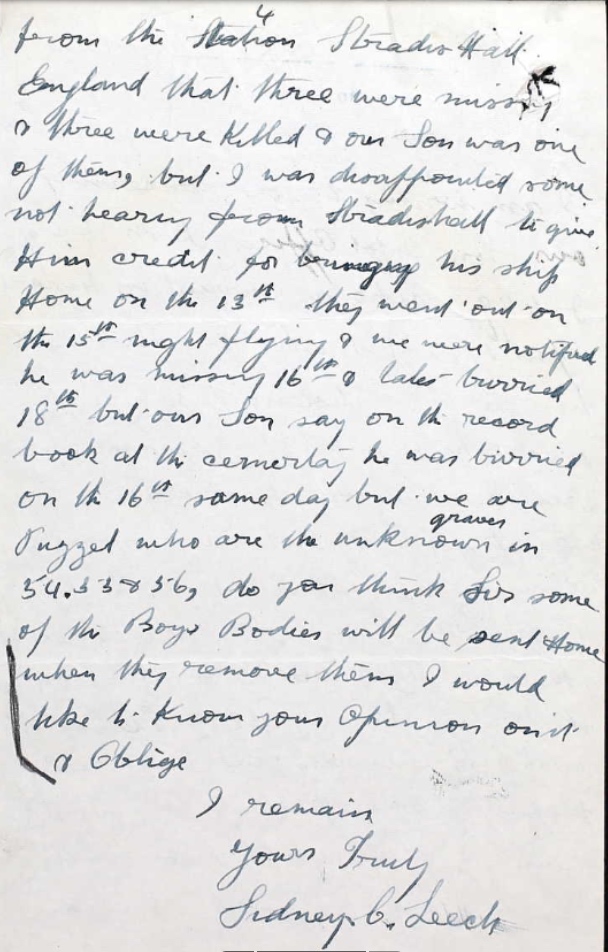 4
from the Station Stradis Hall.
England that three were missing
& three were Killed & our Son was one
of them, but I was disappointed some
not hearing from Stradishall to give
Him credit for bringing his ship
Home on the 13th they went out on
the 15th night flying & we were notified
he was missing 16th & later burried
18th but our Son say on the record
book at the he was burried
on the 16th same day but we are
Puzzel who are the unknown in
graves
54.55 & 56, do you think Sir some
of the Boys Bodies will be sent Home
when they remove them I would
like to Know your Opinion on it
& Oblige
I remain
Yours Truly
Sidney C. Leech